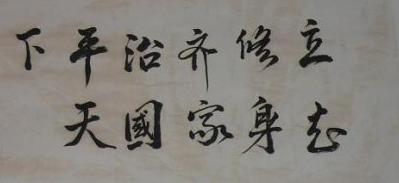 立志
修身
齐家
治國
平天
下